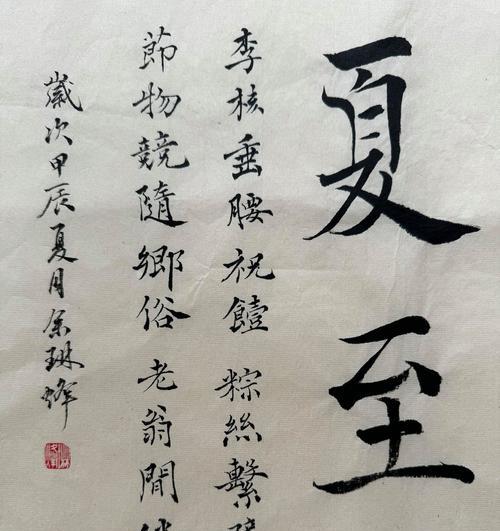 夏至
李核垂腰祝饐粽絲繫
節物競隨鄉俗老翁閒
歲次甲辰夏月余琳